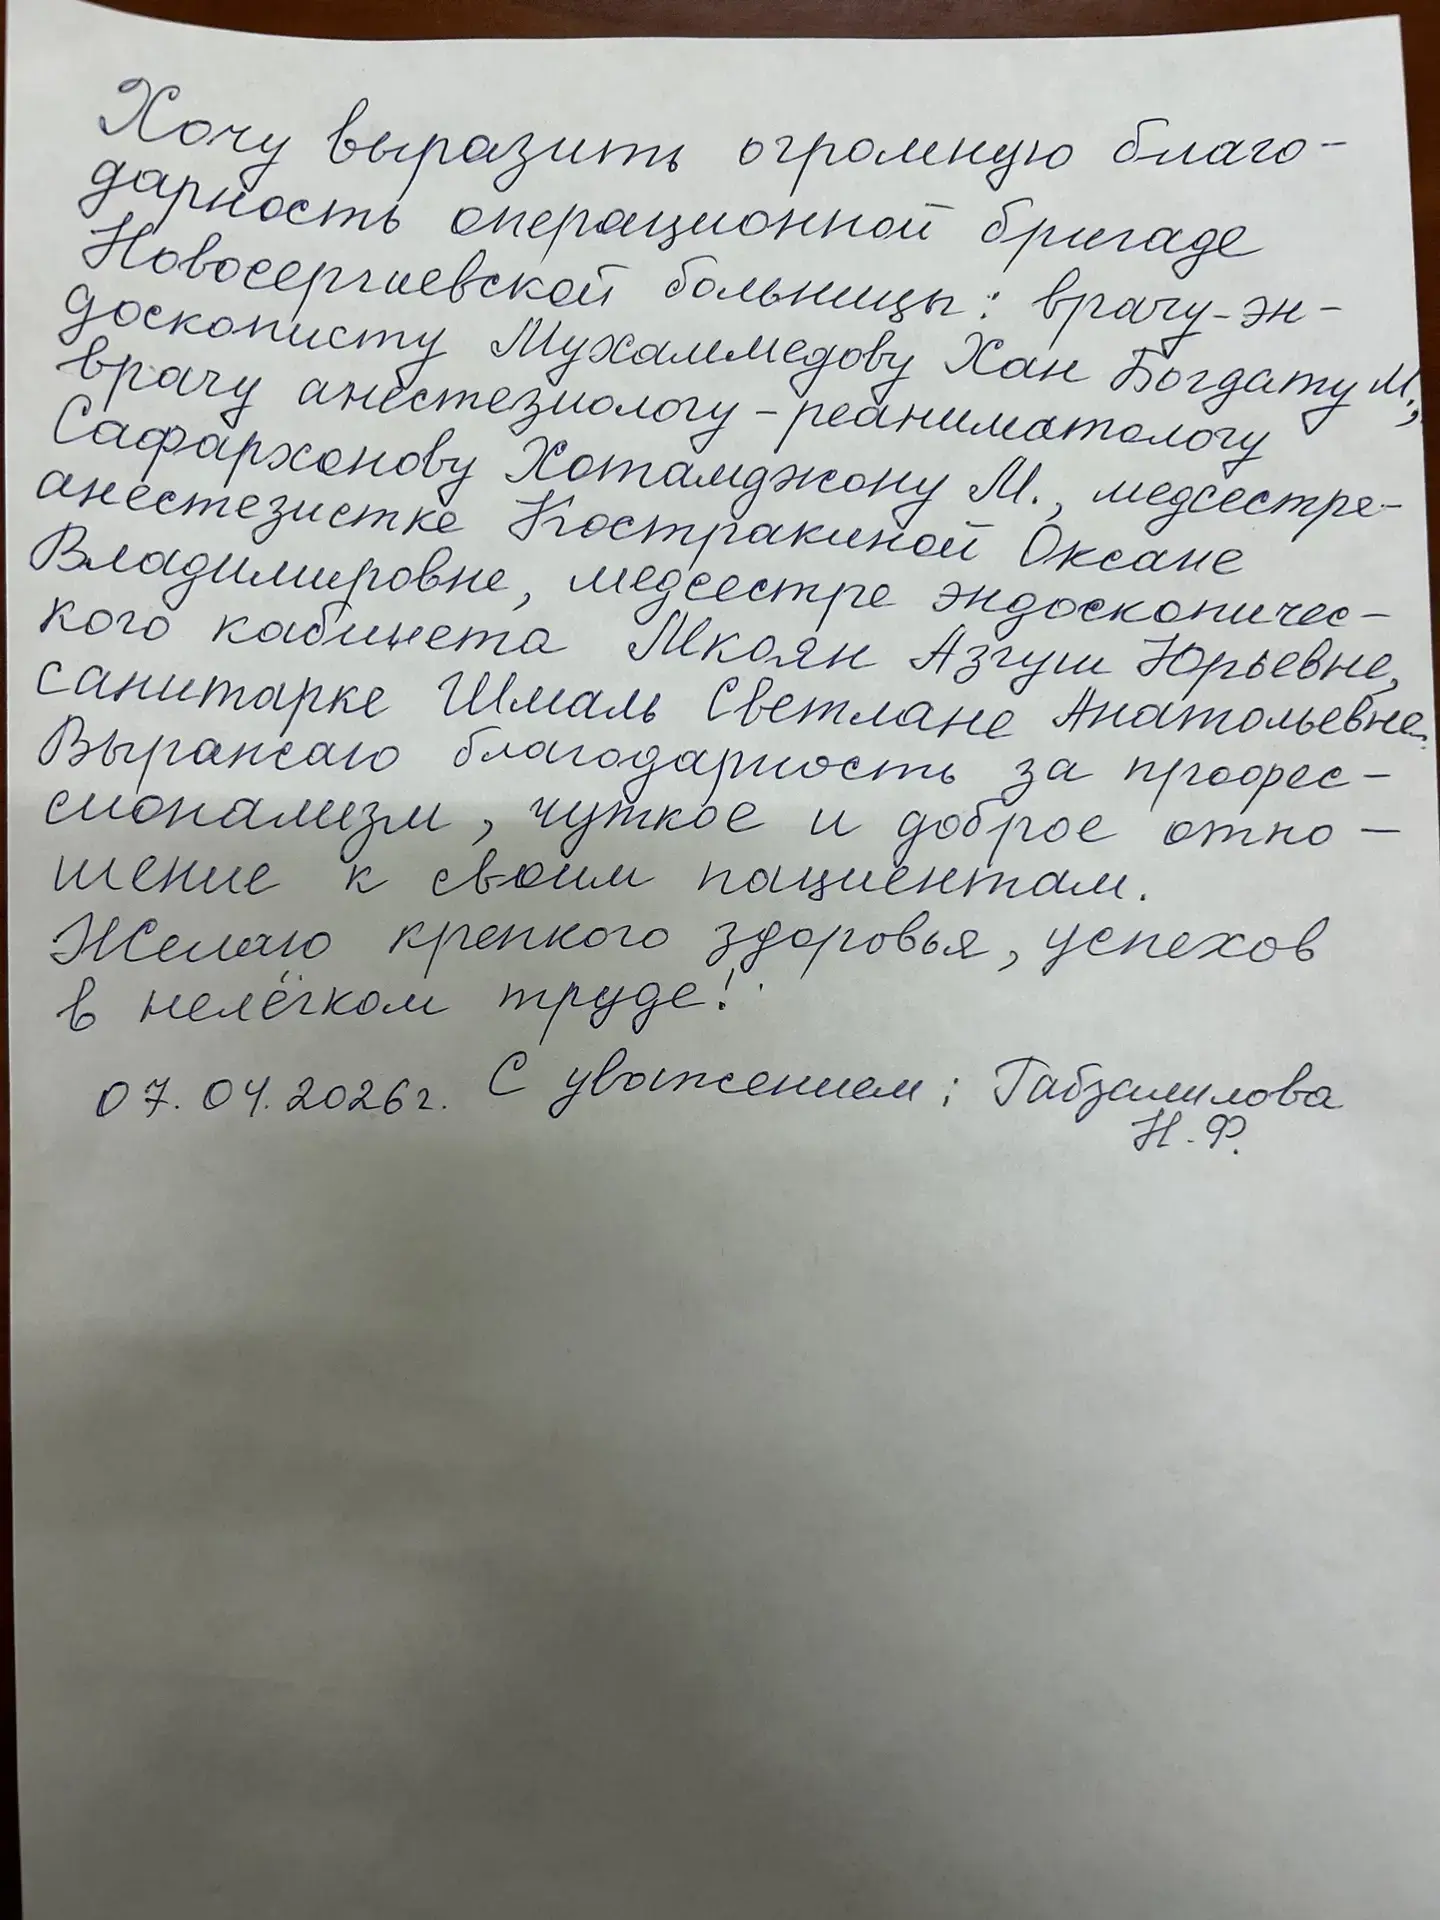 Хочу выразить огромную благо-
дарность операционной бригаде
Новосергиевской больницы: врачу-эн-
доскописту Мухаммедову Хан Богдату М.,
врачу анестезиологу-реаниматологу
Сафархонову Хотамджону М., медсестре-
анестезистке Костракиной Оксане
Владимировне, медсестре эндоскопичес-
кого кабинета Мкоян Азгуш Юрьевне,
санитарке Шмаль Светлане Анатольевне.
Выражаю благодарность за профес-
сионализм, чуткое и доброе отно-
шение к своим пациентам.
Желаю крепкого здоровья, успехов
в нелёгком труде!
07.04.2026г. С уважением; Габзалилова
Н.Ф.